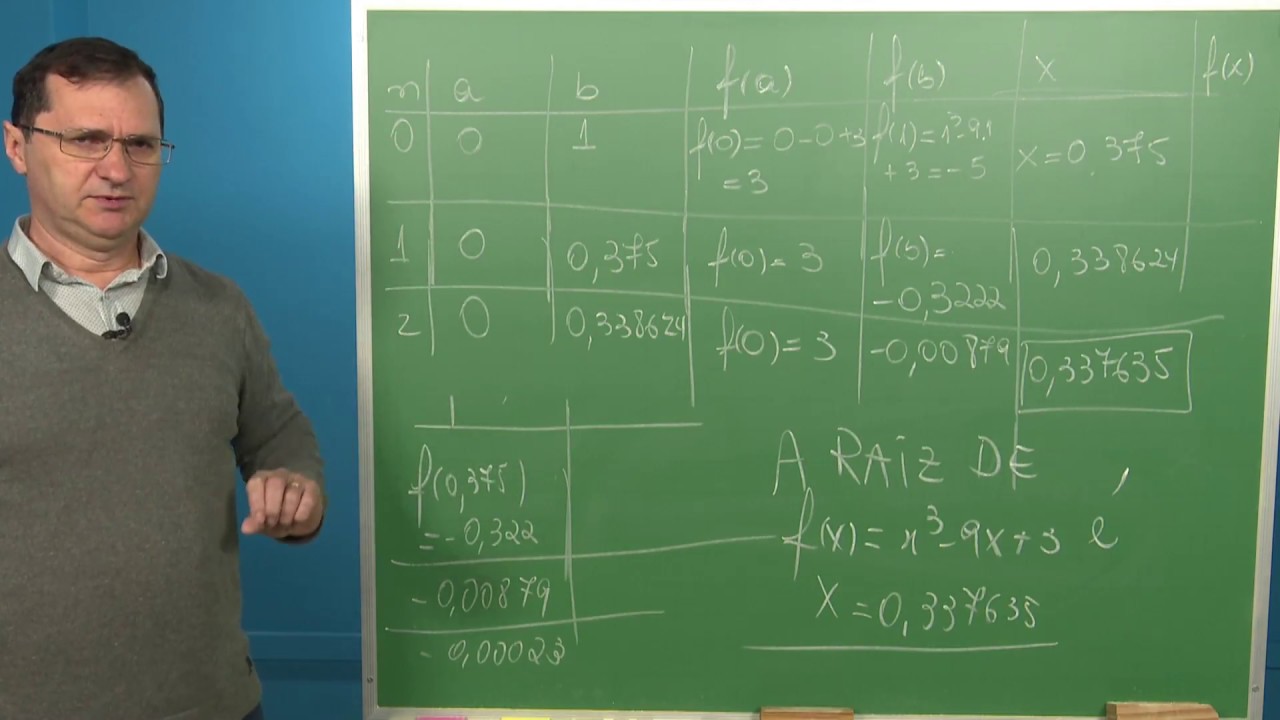 n a b f(a) f(b) x f(x)
0 0 1 f(0) = 0 - 0 + 3 f(1) = 1³-9.1 x = 0,375
= 3 + 3 = - 5
1 0 0,375 f(0) = 3 f(b) = 0,338624
-0,3222
2 0 0,338624 f(0) = 3 -0,00879 0,337635
f(0,375)
= - 0,322
- 0,00879
- 0,00023
A RAÍZ DE
f(x) = x³ - 9x + 3 é
X = 0,337635